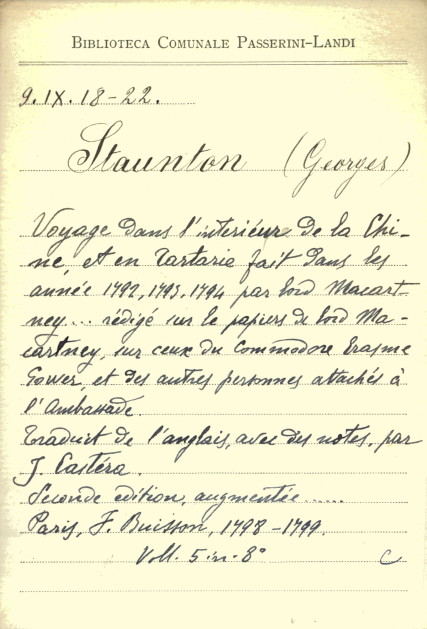 BIBLIOTECA COMUNALE PASSERINI-LANDI
9.IX.18-22.
Staunton (Georges)
Voyage dans l'interiéur de la Chi-
ne, et en Tartarie fait dans les
année 1792, 1793, 1794 par lord Macart-
ney.... rédigé sur le papiers de lord Ma-
cartney, sur ceux du Commodore Erasme
Gower, et des autres personnes attachés à
l'Ambassade.
Traduit de l'anglais, avec des notes, par
J. Castéra.
Seconde edition, augmentée......
Paris, F. Buisson, 1798-1799.
Voll. 5 in-8° C